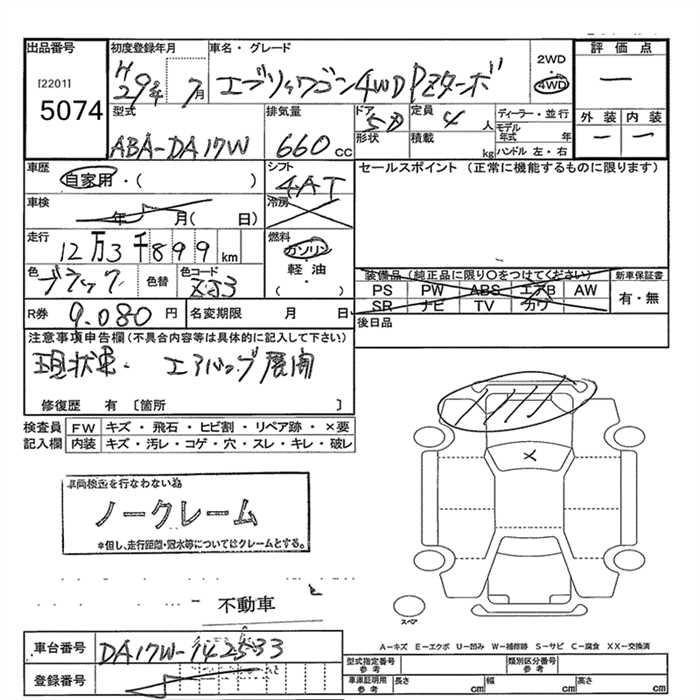 出品番号 初度登録年月 車名・グレード 2WD 4WD 評価点
[2201] H29年 7月 エブリィワゴン4WD PZターボ ー
5074 型式 排気量 ドア 形状 定員 人 積載 kg ディーラー・並行 モデル年式 年 ハンドル 左・右 外装 内装
ABA-DA17W 660cc 5D 4 ー ー
車歴 自家用・( ) シフト 4AT セールスポイント (正常に機能するものに限ります)
車検 年 月( 日) 冷房
走行 12万3千899km 燃料 ガソリン 軽油・( )
色 ブラック 色替 色コード ZJ3 装備品(純正品に限り○をつけてください) 新車保証書
PS PW ABS エアB AW 有・無
SR ナビ TV カワ
R券 9.080円 名変期限 月 日 後日品
注意事項申告欄(不具合内容等は具体的に記入して下さい)
現状車・ エアバッグ展開
修復歴 有 〔箇所 〕
検査員 FW キズ・飛石・ヒビ割・リペア跡・×要
記入欄 内装 キズ・汚レ・コゲ・穴・スレ・キレ・破レ
車両検査を行なわない為
ノークレーム
*但し、走行距離・冠水等についてはクレームとする。
不動車
スペア
A-キズ E-エクボ U-凹み W-補修跡 S-サビ C-腐食 XX-交換済
車台番号 DA17W-142533 型式指定番号 参考 類別区分番号 参考
登録番号 車庫証明用 参考 長さ cm 幅 cm 高さ cm